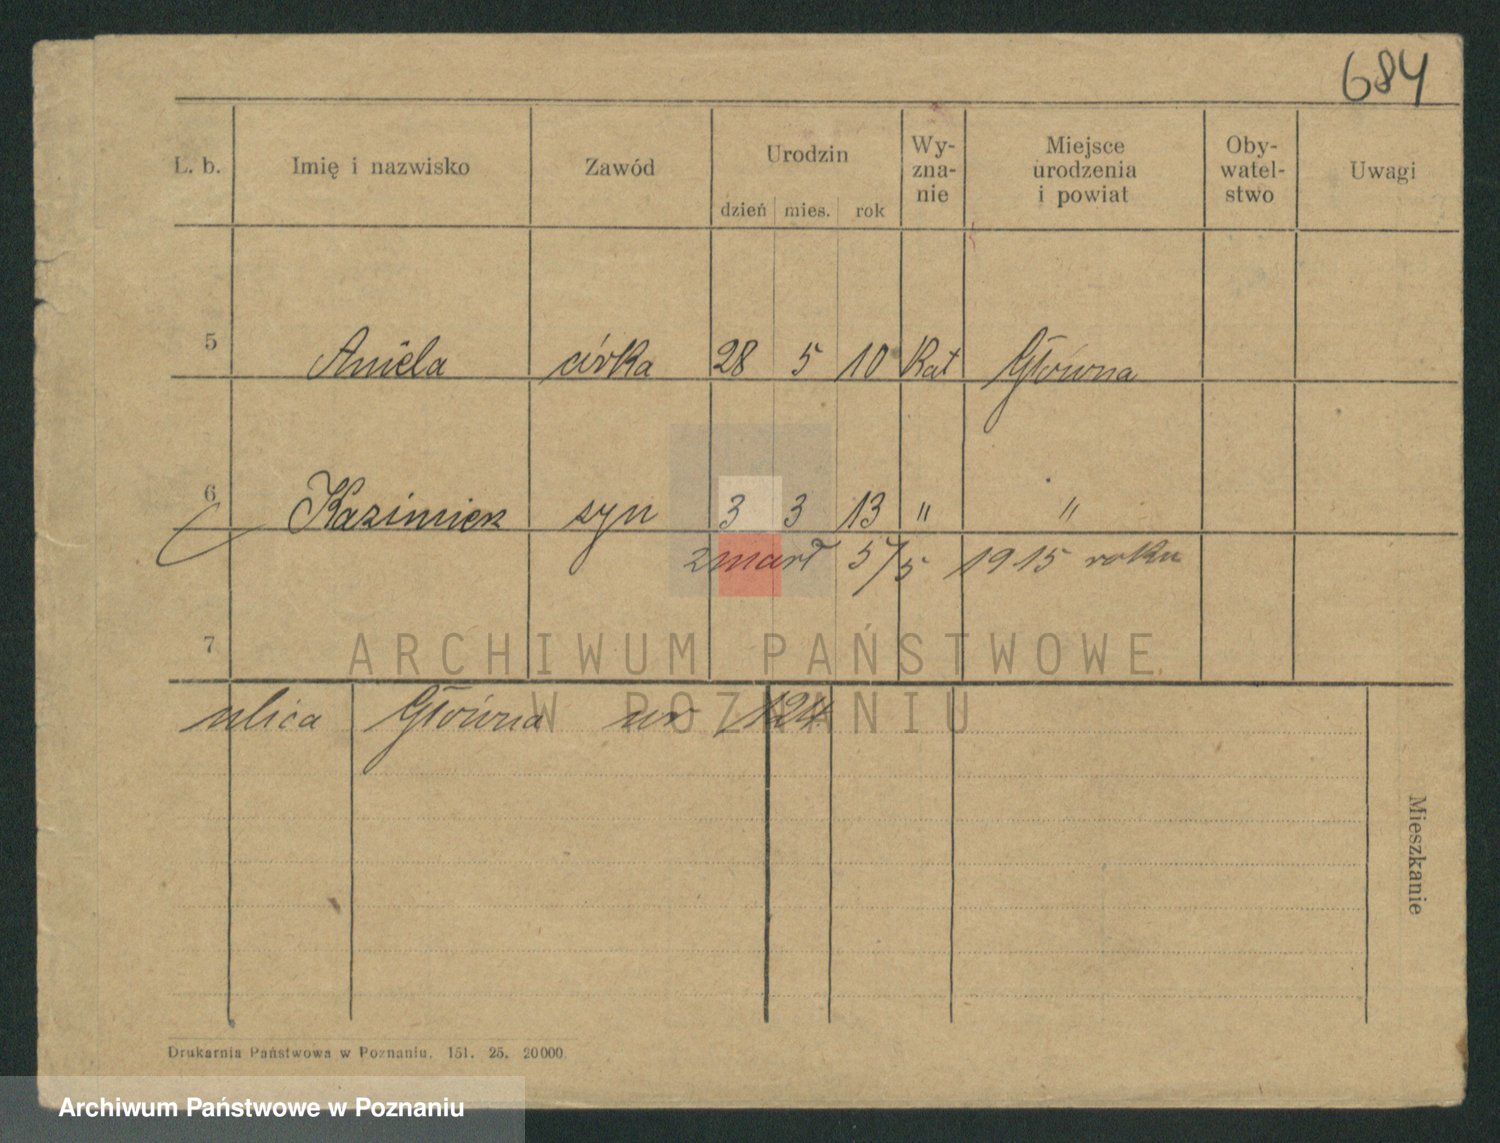 684
L. b. Imię i nazwisko Zawód Urodzin Wy-zna-nie Miejsce urodzenia i powiat Oby-watel-stwo Uwagi
dzień mies. rok
5 Aniela córka 28 5 10 Kat Główna
6 Kazimierz syn 3 3 13 " "
zmarł 5/5 1915 roku
7
ARCHIWUM PAŃSTWOWE
W POZNANIU
ulica Główna nr 124
Mieszkanie
Drukarnia Państwowa w Poznaniu. 151. 25. 20000
Archiwum Państwowe w Poznaniu